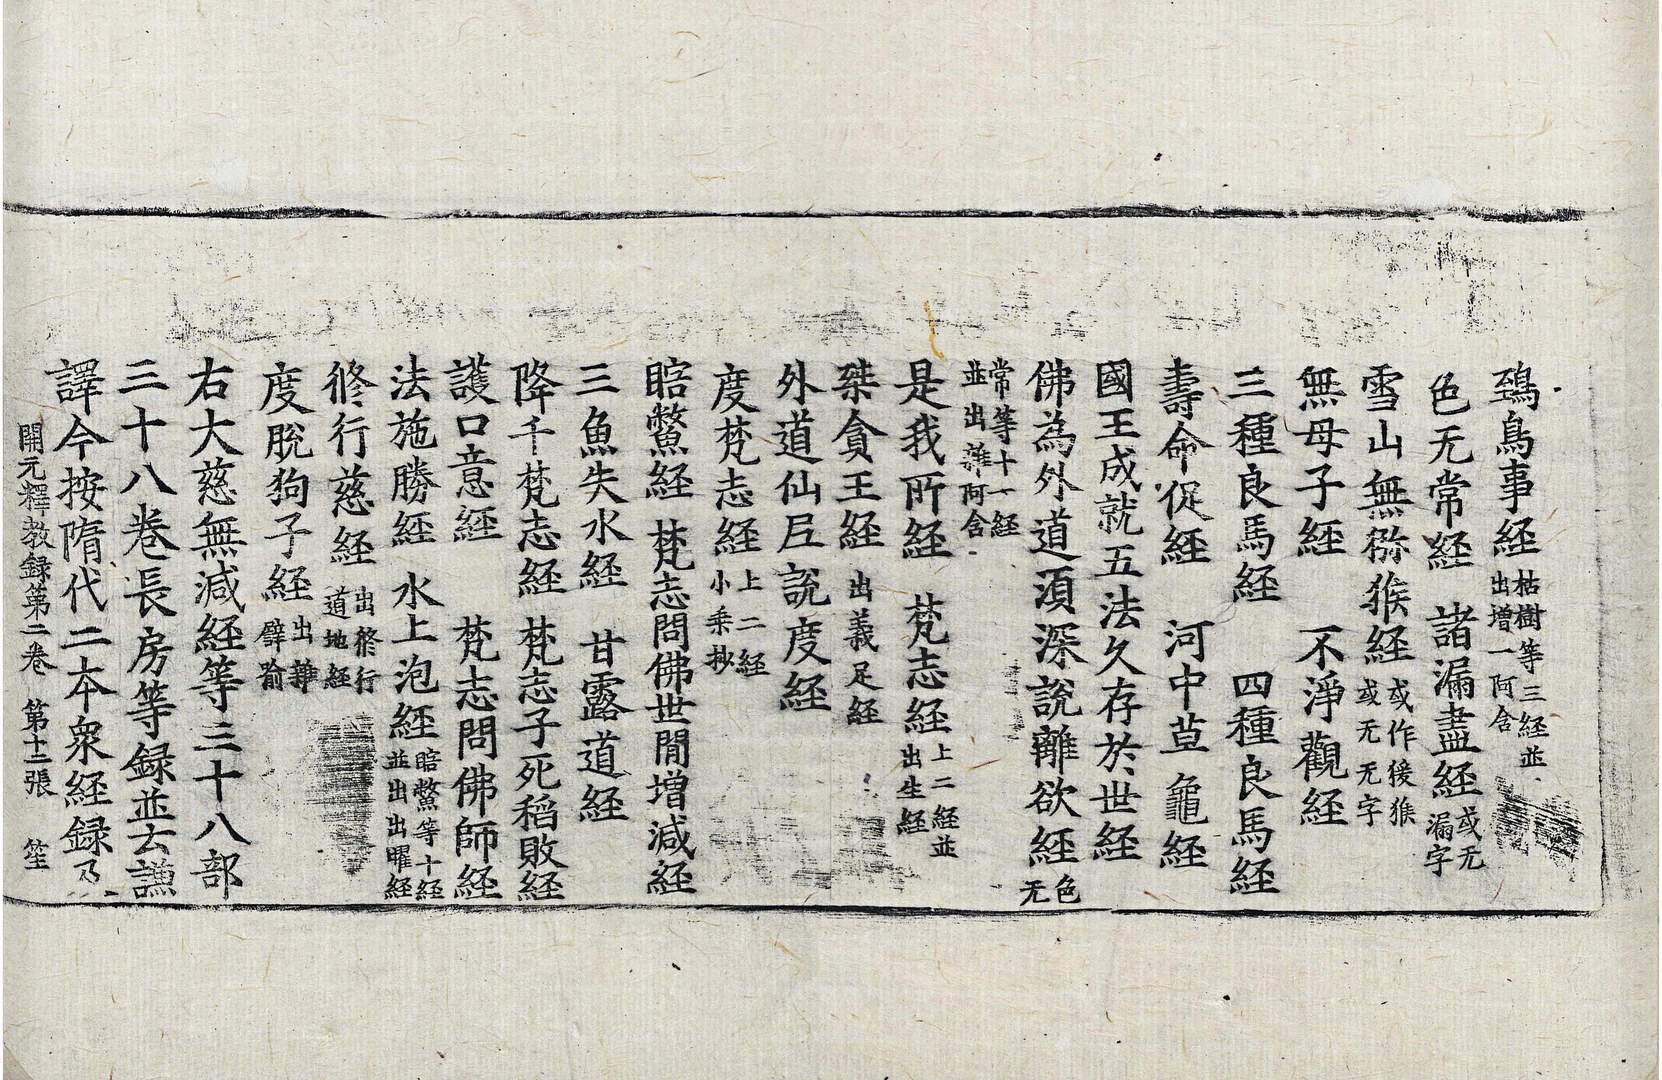 鵄鳥事経枯樹等三経並出增一阿含
色无常経　諸漏盡経或无漏字
雪山無猕猴経或作獶猴或无无字
無母子経　不淨觀経
三種良馬経　四種良馬経
壽命促経　河中草龜経
國王成就五法久存於世経
佛為外道湏深說離欲経色无
常等十一経並出雜阿含
是我所経　梵志経上二経並出生経
桀貪王経出義足経
外道仙尼說度経
度梵志経上二経小乘抄
暗鱉経　梵志問佛世閒增減経
三魚失水経　甘露道経
降千梵志経　梵志子死稻敗経
護口意経　梵志問佛師経
法施勝経　水上泡経暗鱉等十経並出出曜経
修行慈経出修行道地経
度脫狗子経出雜譬喻
右大慈無減経等三十八部
三十八卷長房等録並云謙
譯今按隋代二本衆経録及
開元釋教録第二卷　第十二張　笙